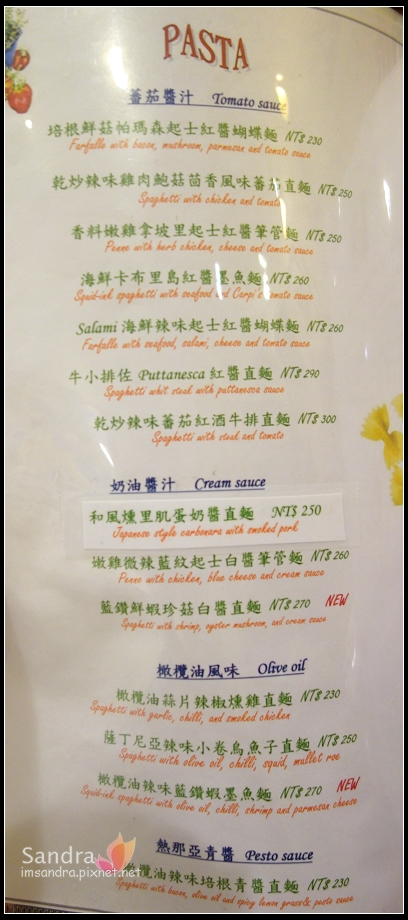 PASTA
蕃茄醬汁 Tomato sauce
培根鮮菇帕瑪森起士紅醬蝴蝶麵 NT$ 230
Farfalle with bacon, mushroom, parmesan and tomato sauce
乾炒辣味雞肉鮑菇茴香風味蕃茄直麵 NT$ 250
Spaghetti with chicken and tomato
香料嫩雞拿坡里起士紅醬筆管麵 NT$ 250
Penne with herb chicken, cheese and tomato sauce
海鮮卡布里島紅醬墨魚麵 NT$ 260
Squid-ink spaghetti with seafood and Carpi's tomato sauce
Salami 海鮮辣味起士紅醬蝴蝶麵 NT$ 260
Farfalle with seafood, salami, cheese and tomato sauce
牛小排佐 Puttanesca 紅醬直麵 NT$ 290
Spaghetti whit steak with puttanesca sauce
乾炒辣味蕃茄紅酒牛排直麵 NT$ 300
Spaghetti with steak and tomato
奶油醬汁 Cream sauce
和風燻里肌蛋奶醬直麵 NT$ 250
Japanese style carbonara with smoked pork
嫩雞微辣藍紋起士白醬筆管麵 NT$ 260
Penne with chicken, blue cheese and cream sauce
藍鑽鮮蝦珍菇白醬直麵 NT$ 270 NEW
Spaghetti with shrimp, oyster mushroom, and cream sauce
橄欖油風味 Olive oil
橄欖油蒜片辣椒燻雞直麵 NT$ 230
Spaghetti with garlic, chilli, and smoked chicken
薩丁尼亞辣味小卷烏魚子直麵 NT$ 250
Spaghetti with olive oil, chilli, squid, mullet roe
橄欖油辣味藍鑽蝦墨魚麵 NT$ 270 NEW
Squid-ink spaghetti with olive oil, chilli, shrimp and parmesan cheese
熱那亞青醬 Pesto sauce
橄欖油辣味培根青醬直麵 NT$ 230
Spaghetti with bacon, olive oil and spicy lemon grass& pesto sauce
Sandra
imsandra.pixnet.net